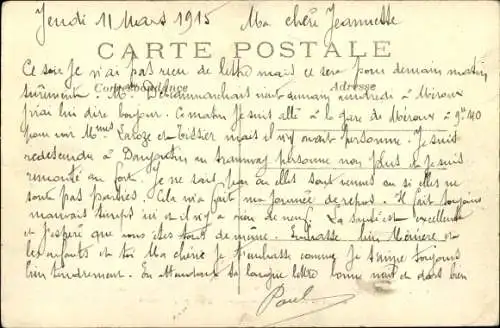 Jeudi 11 Mars 1915 Ma chère Jeannette
CARTE POSTALE
Ce soir Je n'ai pas recu de lettre mais ce sera pour demain matin
Correspondance Adresse
surement. Mr vont demain vendredi à Méroux
J'irai lui dire bonjour. Ce matin Je suis allé à la gare de Méroux à 9h40
pour voir Mmes Laroze et Tissier mais il n'y avait personne. Je suis
redescendu à Danjoutin au tramway personne non plus et Je suis
remonté au fort. Je ne sais pas ou elles sont venues ou si elles ne
sont pas parties. Cela m'a fait ma journée de repos. Il fait toujours
mauvais temps ici et il n'y a rien de neuf. La santé est excellente
et J'espère que vous êtes tous de même. Embrasse bien et
les enfants et toi Ma chérie Je t'embrasse comme Je t'aime toujours
bien tendrement. En attendant ta longue lettre bonne nuit de dors bien
Paul